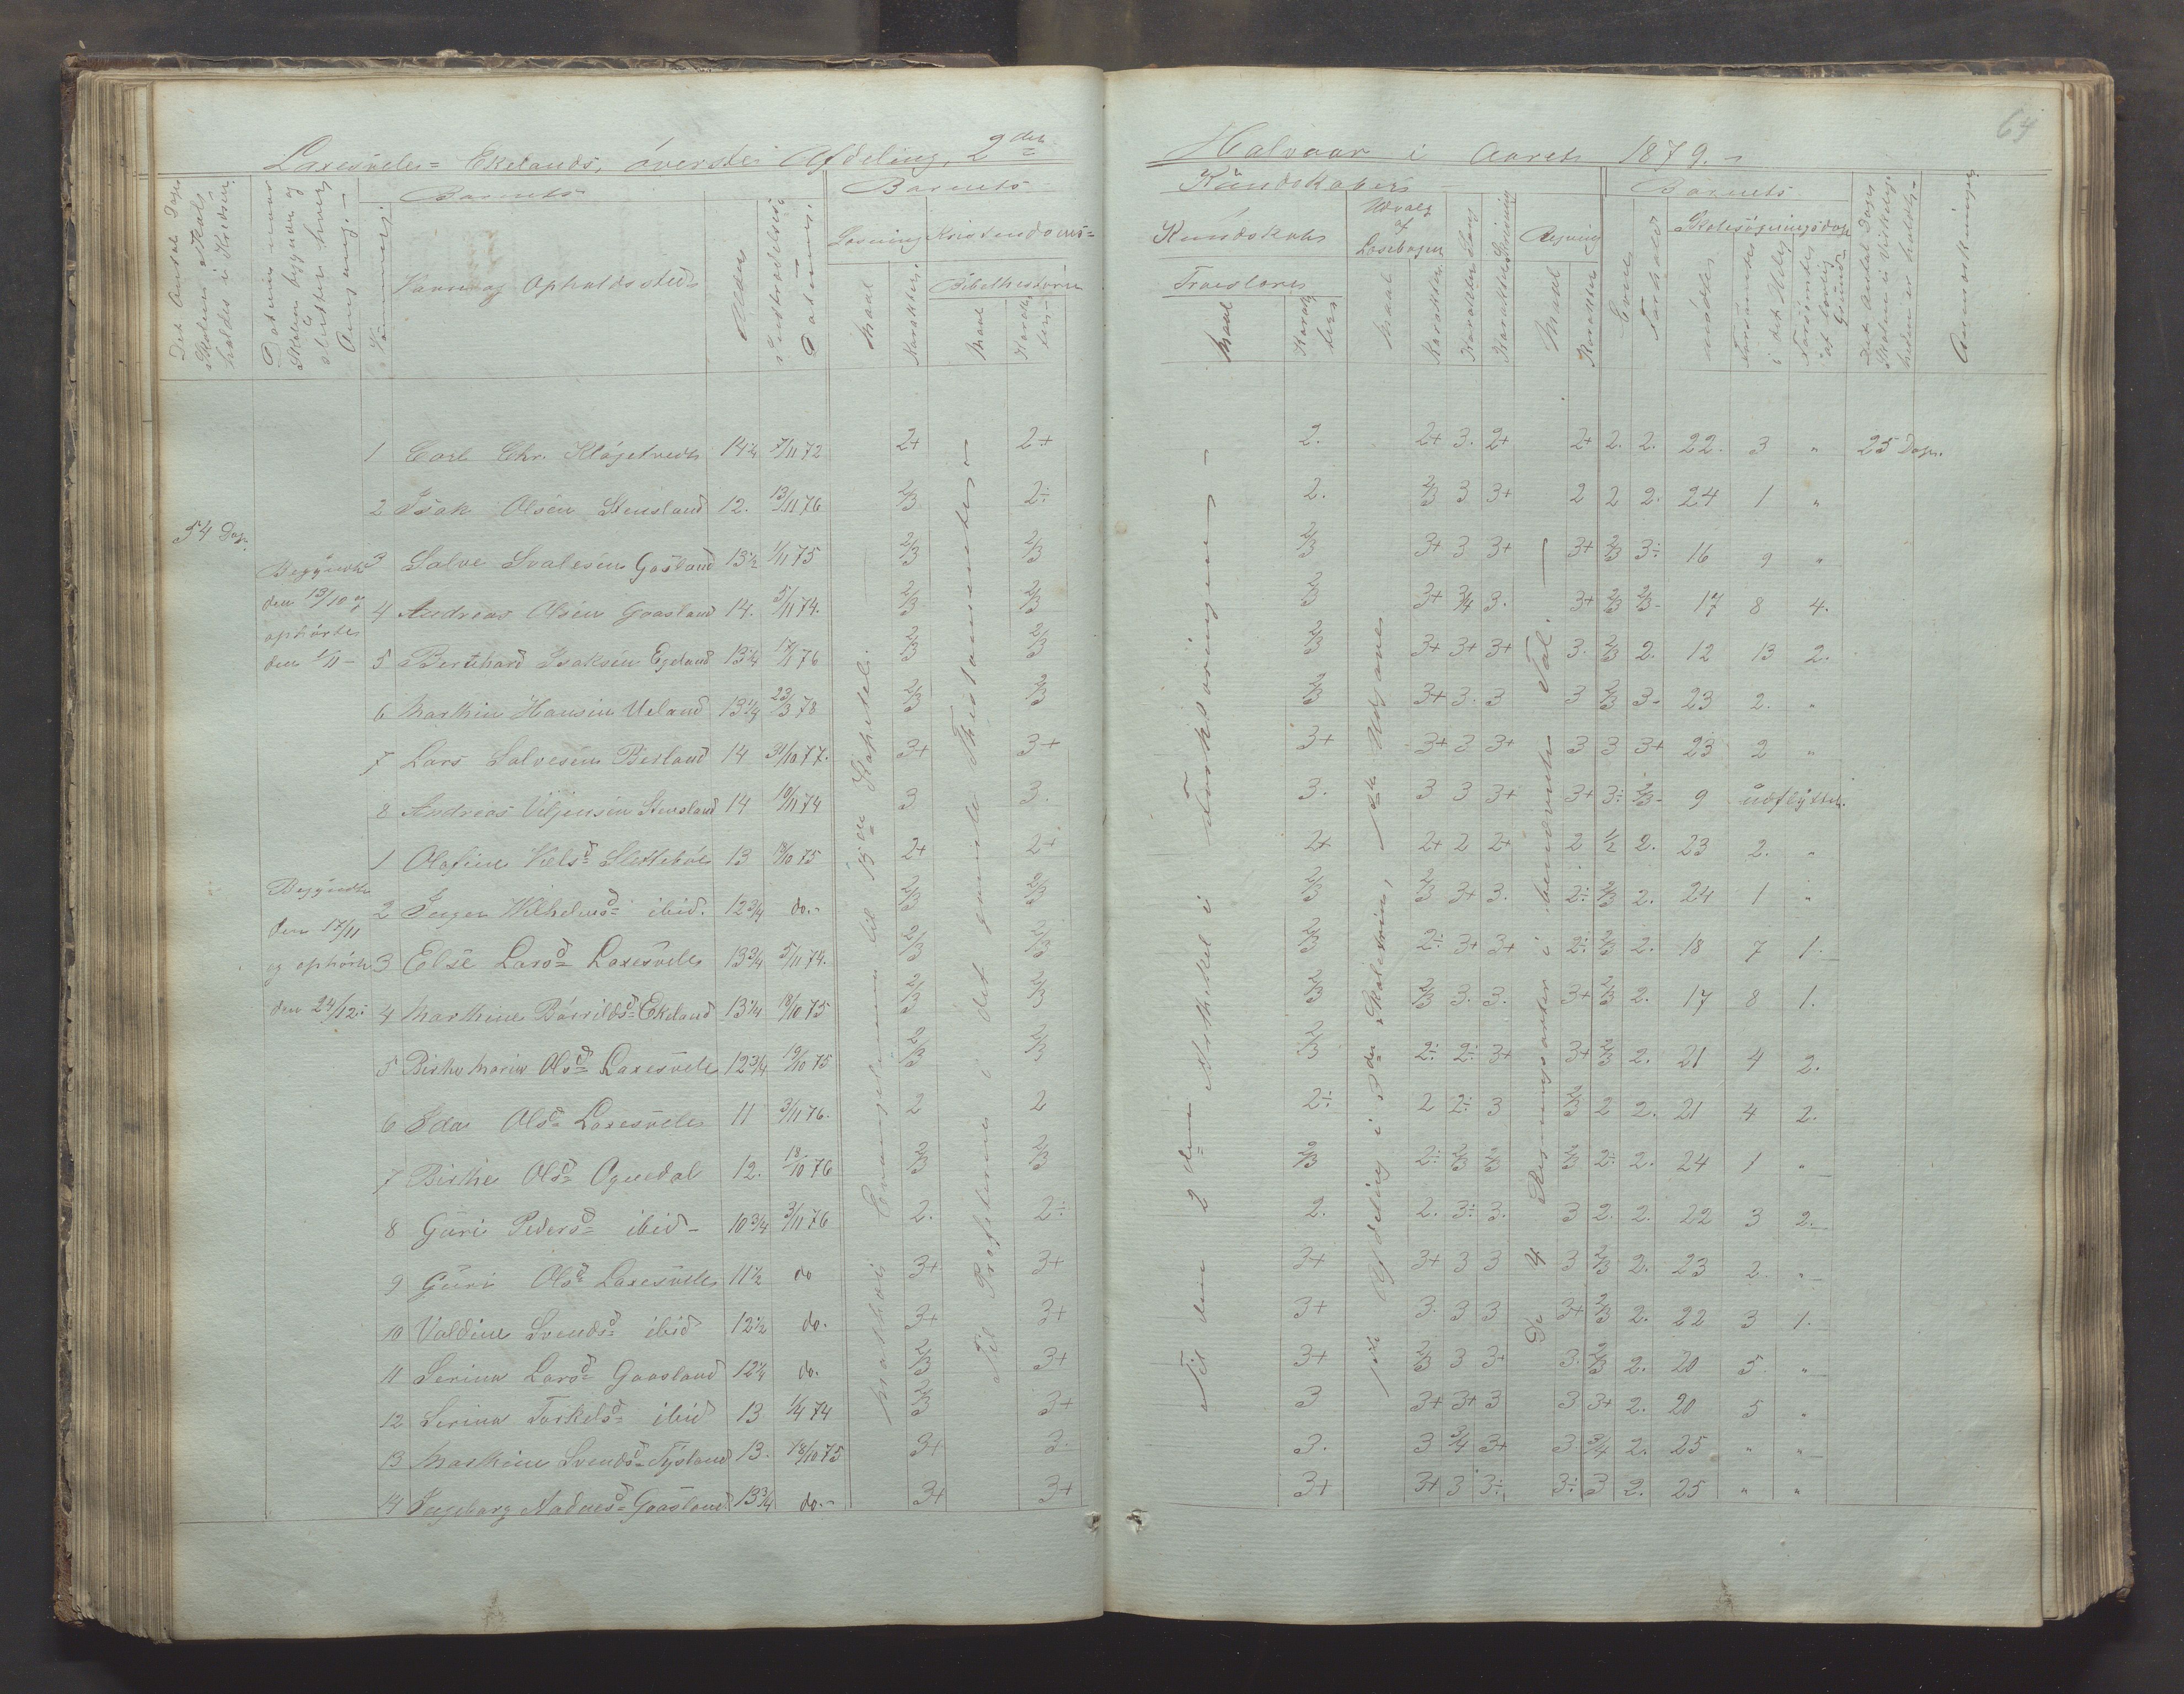 64
Laxesvele= Ekelands, överste Afdeling, 2den Halvaar i Aaret 1879.-
Det Antal Dage Skolen skal holdes i Kredsen.
Datum naar Skolen begynder og slutter hver Omgang.-
Barnets
Nummer.
Navn og Opholdssted
Alder
Indtrædelses= Datum.
Barnets Kundskaber
Læsning
Maal
Karakter.
Kristendoms= Kundskab
Bibelhistorie
Maal
Karakter
Troeslære
Maal
Karakter
Udvalg af Læsebogen
Maal
Karakter
Sang
Karakter
Skrivning
Karakter
Regning
Maal
Karakter
Barnets
Evne
Forhold
Skolesøgningsdage
mødte
forsømte i det Hele
forsømte af lovlig Grund
Det Antal Dage Skolen i Virkeligheden er holdt.-
Anmærkninger
54 Dage
Begyndte den 13/10 og ophørte den 1/11 -
1 Carl Chr. Klögetvedt 14¼ 7/11 72 2+ 2+ 2. 2+ 3. 2+ 2+ 2. 2. 22. 3 " 25 Dage.
2 Isak Olsen Stensland 12. 13/11 76 2/3 2÷ 2. 2/3 3 3+ 2 2 2. 24 1 "
3 Salve Svalesen Gosland 13½ 1/11 75 2/3 2/3 2/3 3+ 3 3+ 3+ 2/3 3÷ 16 9 "
4 Andreas Olsen Gaasland 14. 5/11 74. 2/3 2/3 2/3 3+ 3/4 3. 3+ 2/3 2/3- 17 8 4.
5 Bernhard Isaksen Egeland 13¼ 17/11 76 2/3 2/3 2/3 3+ 3+ 3+ 3. 2/3 2. 12 13 2.
6 Marthin Hansen Ueland 13¼ 23/3 78 2/3 2/3 2/3 3+ 3. 3 3 2/3 3- 23 2. "
7 Lars Salvesen Birland 14 31/10 77. 3+ 3+ 3+ 3+ 3 3+ 3 3 3+ 23 2 "
8 Andreas Viljensen Stensland 14 19/11 74 3 3. 3. 3 3 3+ 3+ 3÷ 2/3- 9 udflyttet.
Begyndte den 17/11 og ophørte den 24/12.
1 Olafine Nielsd Slettebøe 13 18/10 75 2+ 2+ 2+ 2+ 2 2+ 2 1/2 2. 23 2. "
2 Inger Wilhelmsd ibid. 12¾ do.- 2/3 2/3 2/3 2/3 3+ 3. 2÷ 2/3 2. 24 1 "
3 Else Larsd Laxesvele 13¾ 5/11 74. 2/3 2/3 2/3 2÷ 3+ 3+ 2÷ 2/3 2. 18 7 1.
4 Marthine Bårildsd Ekeland 13¼ 18/10 75 2/3 2/3 2/3 2/3 3. 3. 3+ 2/3 2. 17 8 1.
5 Birthe Marie Olsd Laxesvele 12¾ 19/10 75 2/3 2/3 2/3 2÷ 2÷ 3+ 3+ 2/3 2. 21 4 2.
6 Ida Olsd Laxesvele 11 3/11 76. 2 2 2÷ 2 2÷ 3 2/3 2 2. 21 4 2.
7 Birthe Olsd Ognedal 12. 18/10 76 2/3 2/3 2/3 2÷ 2/3 2/3 2/3 2÷ 2. 24 1 "
8 Guri Pedersd ibid- 10¾ 3/11 76 2. 2÷ 2. 2. 3÷ 3. 3 2. 2. 22 3 2.
9 Guri Olsd Laxesvele 11½ do 3+ 3+ 3+ 3+ 3 3 3 2/3 2. 23 2 "
10 Valdine Svendsd ibid 12½ do. 3+ 3+ 3+ 3. 3 3 3+ 2/3 2. 22 3 1.
11 Serina Larsd Gaasland 12¼ do. 2/3 3+ 3+ 2/3 3 3+ 3. 2/3 2. 20 5 "
12 Serina Torkelsd ibid 13 1/4 74 2/3 3+ 3 3+ 3+ 3 3 3+ 2. 20 5 "
13 Marthine Svendsd Tysland 13. 18/10 75 3+ 3. 3. 3 3/4 3+ 3 3/4 2. 25 " "
14 Ingeborg Aadnesd Gaasland 13¾ do.- 3+ 3+ 3+ 3+ 3 3÷ 3÷ 3 2. 25 " "
Mathæi Evangelium til 15de Kapitel.
Til Profeterne i det gamle Thestamente.-
Til den 2den Arthikel i Forklaringen.-
Afdeling i 3die Skoletrin, Udgave
De 4 Regningsarter i benævnte Tal.-